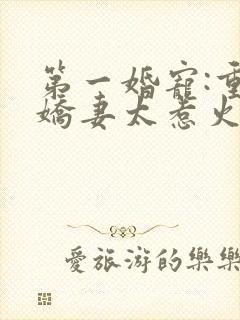 第一婚寵:重
嬌妻太惹火
愛旅游的樂樂